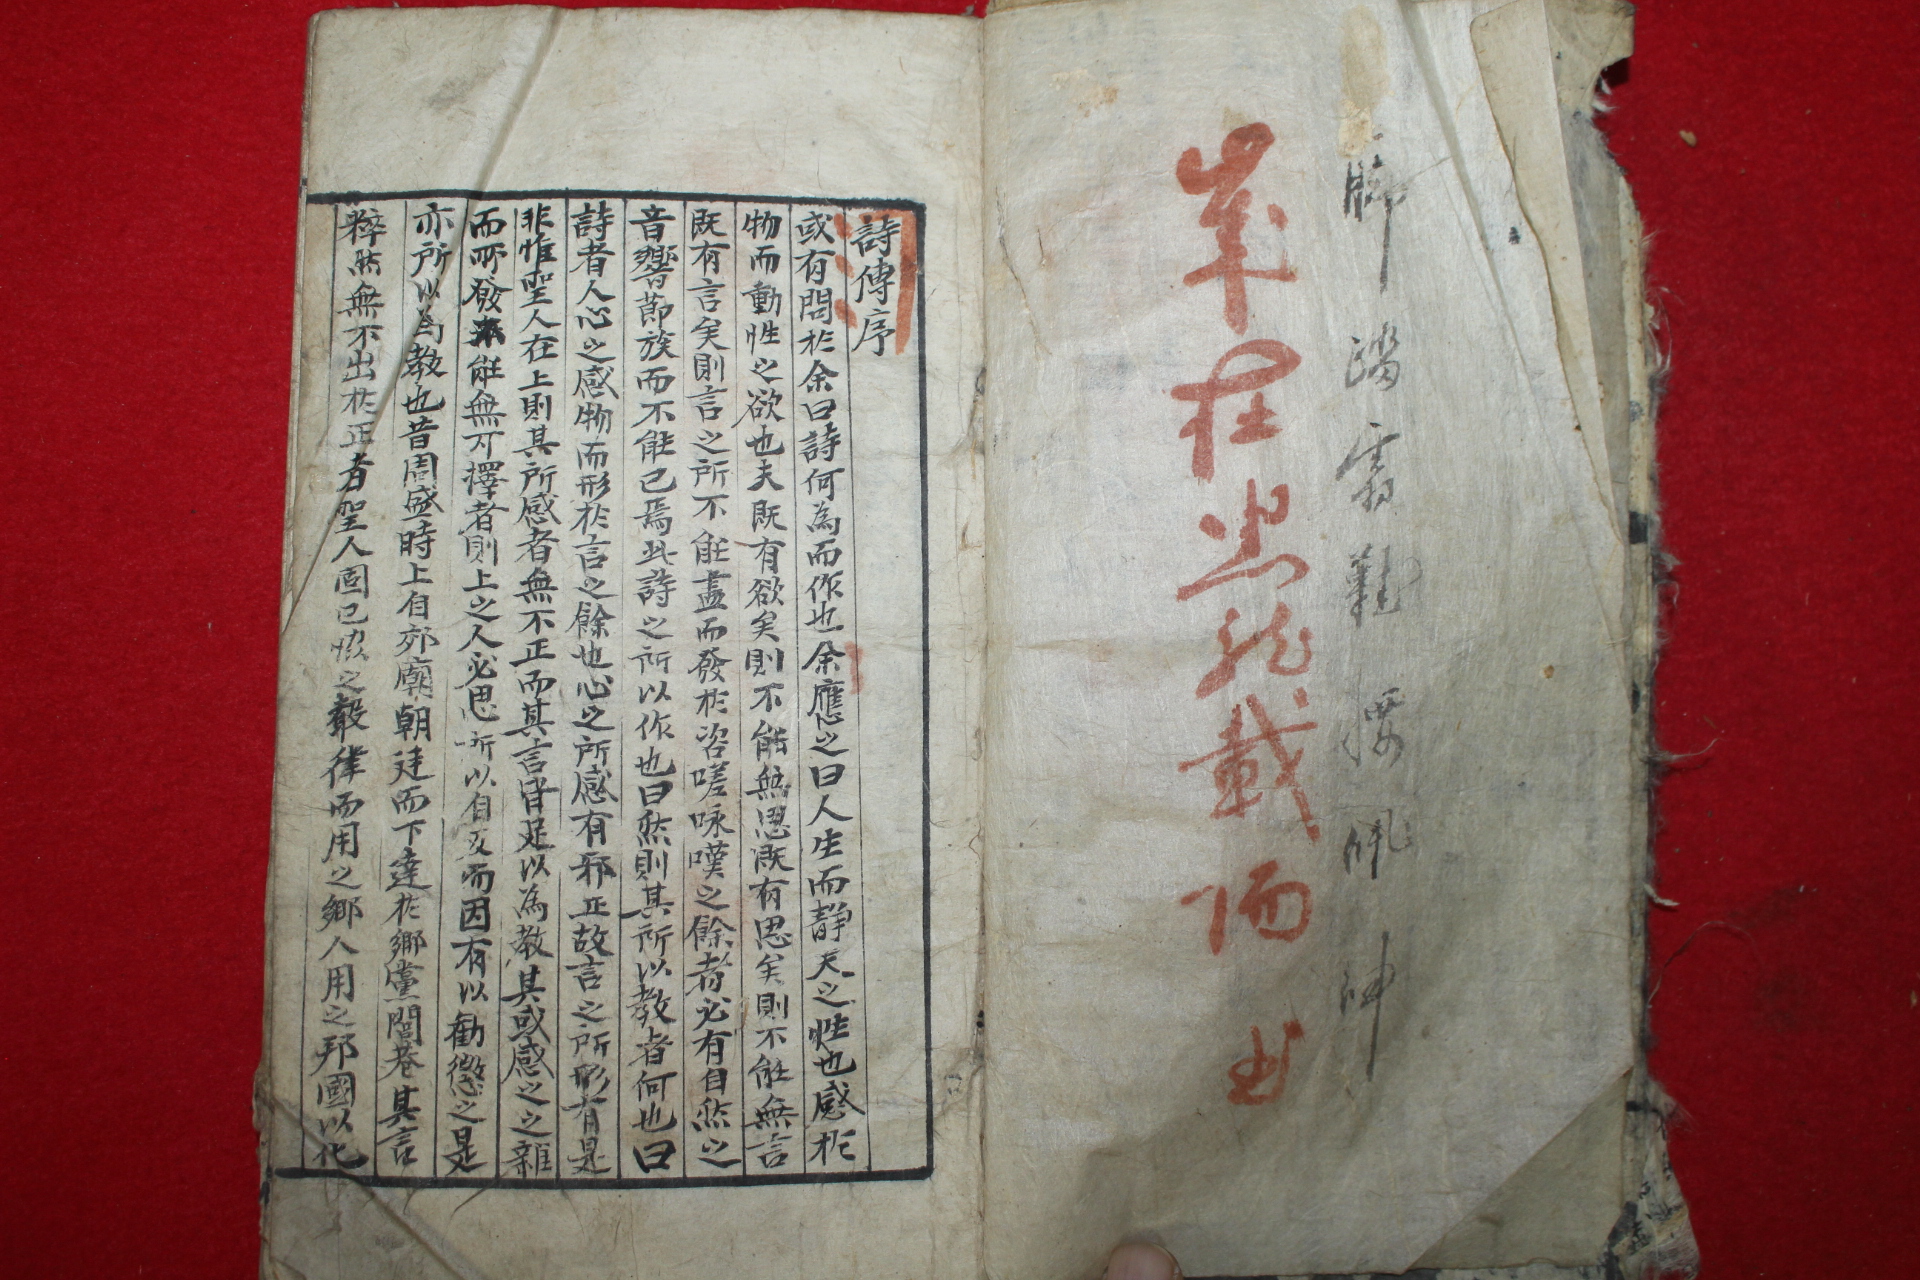 脚踏
歲在龍載陽
詩傳序
或有問於余曰詩何為而作也余應之曰人生而靜天之性也感於
物而動性之欲也夫既有欲矣則不能無思既有思矣則不能無言
既有言矣則言之所不能盡而發於咨嗟咏嘆之餘者必有自然之
音響節族而不能已焉此詩之所以作也曰然則其所以教者何也曰
詩者人心之感物而形於言之餘也心之所感有邪正故言之所形有是
非惟聖人在上則其所感者無不正而其言皆足以為教其或感之之雜
而所發不能無可擇者則上之人必思所以自反而因有以勸懲之是
亦所以為教也昔周盛時上自郊廟朝廷而下達於鄉黨閭巷其言
粹然無不出於正者聖人固已恊之聲律而用之鄉人用之邦國以化